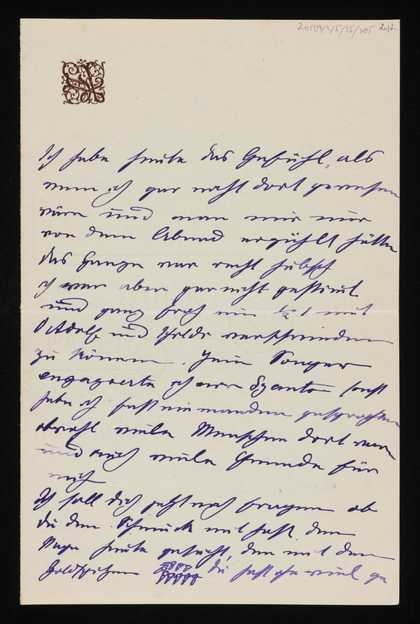 Ich habe heute das Gefühl, als
wenn ich gar nicht dort gewesen
wäre und man mir nur
von dem Abend erzählt hätte
das Ganze war recht hübsch
ich war aber gar nicht gestimmt
und ganz froh um ½1 mit
Adolf und Hilde verschwinden
zu können. Zum Souper
engagierte ich mir Szanto sonst
habe ich fast niemandem gesprochen
obwohl viele Menschen dort waren
und auch viele Fremde für
mich
Ich soll dich jetzt noch fragen ob
du den Schmuck mit hast, den
heute gesucht, den mit den
Goldspitzen du hast ja viel ge